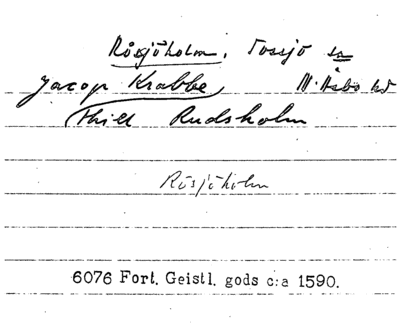 Rösjöholm, Tossjö sn
Jacop Krabbe N. Åsbo hd
Thill Rudsholm
Rösjöholm
6076 Fort. Geistl. gods c:a 1590.